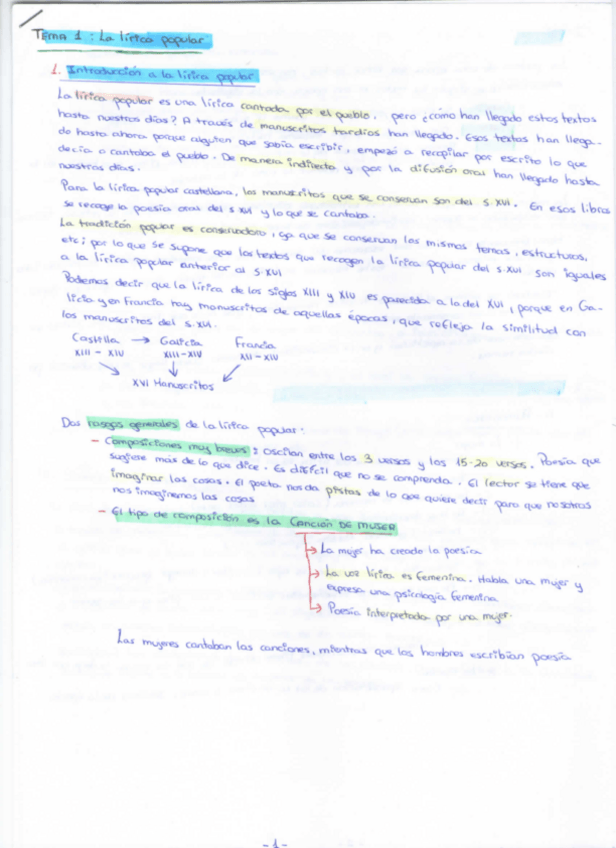 TEMA 1: La lírica popular
1. Introducción a la lírica popular
La lírica popular es una lírica cantada por el pueblo, pero ¿cómo han llegado estos textos
hasta nuestros días? A través de manuscritos tardíos han llegado. Esos textos han llega-
do hasta ahora porque alguien que sabía escribir, empezó a recopilar por escrito lo que
decía o cantaba el pueblo. De manera indirecta y por la difusión oral han llegado hasta
nuestros días.
Para la lírica popular castellana, los manuscritos que se conservan son del s.XVI. En esos libros
se recoge la poesía oral del s XVI y lo que se cantaba.
La tradición popular es conservadora, ya que se conservan los mismos temas, estructuras,
etc; por lo que se supone que los textos que recogen la lírica popular del s.XVI son iguales
a la lírica popular anterior al s.XVI
Podemos decir que la lírica de los siglos XIII y XIV es parecida a la del XVI, porque en Ga-
licia y en Francia hay manuscritos de aquellas épocas, que refleja la similitud con
los manuscritos del s.XVI.
Castilla → Galicia Francia
XIII - XIV XIII-XIV XII - XIV
XVI Manuscritos
Dos rasgos generales de la lírica popular:
- Composiciones muy breves: oscilan entre los 3 versos y los 15-20 versos. Poesía que
sugiere más de lo que dice. Es difícil que no se comprenda. El lector se tiene que
imaginar las cosas. El poeta nos da pistas de lo que quiere decir para que nosotros
nos imaginemos las cosas
- El tipo de composición es la CANCIÓN DE MUJER
→ La mujer ha creado la poesía
→ La voz lírica es femenina. Habla una mujer y
expresa una psicología femenina
→ Poesía interpretada por una mujer.
Las mujeres cantaban las canciones, mientras que los hombres escribían poesía
- 1 -